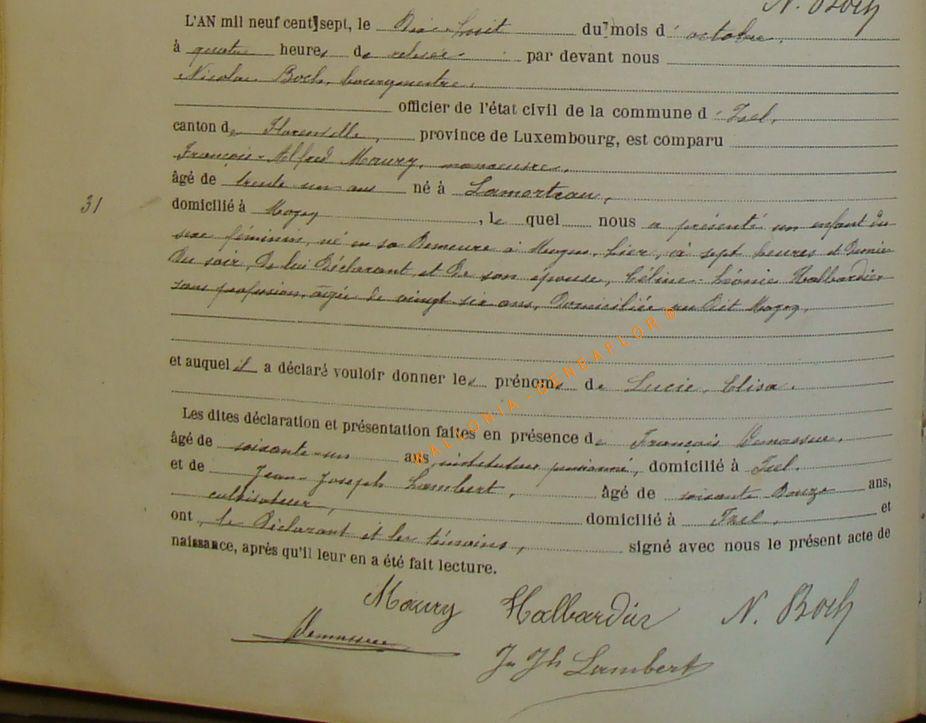 N. Boch
L'AN mil neuf cent sept, le Dix-huit du mois d' octobre,
à quatre heures de relevée par devant nous
Nicolas Boch, bourgmestre,
officier de l'état civil de la commune d' Izel,
canton de Florenville, province de Luxembourg, est comparu
François-Alfred Maury, manoeuvre,
âgé de trente un ans né à Lamorteau,
31
domicilié à Moyen, le quel nous a présenté un enfant du
sexe féminin, né en sa Demeure à Moyen, hier, à sept heures et Demie
Du soir, De lui Déclarant et De son épouse, Céline Léonie Halbardier
sans profession, âgée De vingt six ans, Domiciliée au Dit Moyen,
et auquel il a déclaré vouloir donner les prénoms de Lucie, Elisa.
Les dites déclaration et présentation faites en présence de François
âgé de soixante-un ans instituteur pensionné, domicilié à Izel.
et de Jean-Joseph Lambert, âgé de soixante Douze ans,
cultivateur, domicilié à Izel, et
ont, le Déclarant et les témoins, signé avec nous le présent acte de
naissance, après qu'il leur en a été fait lecture.
Maury Halbardier N. Boch
Jn Jh Lambert
WALLONIA-GENEAFLOR©